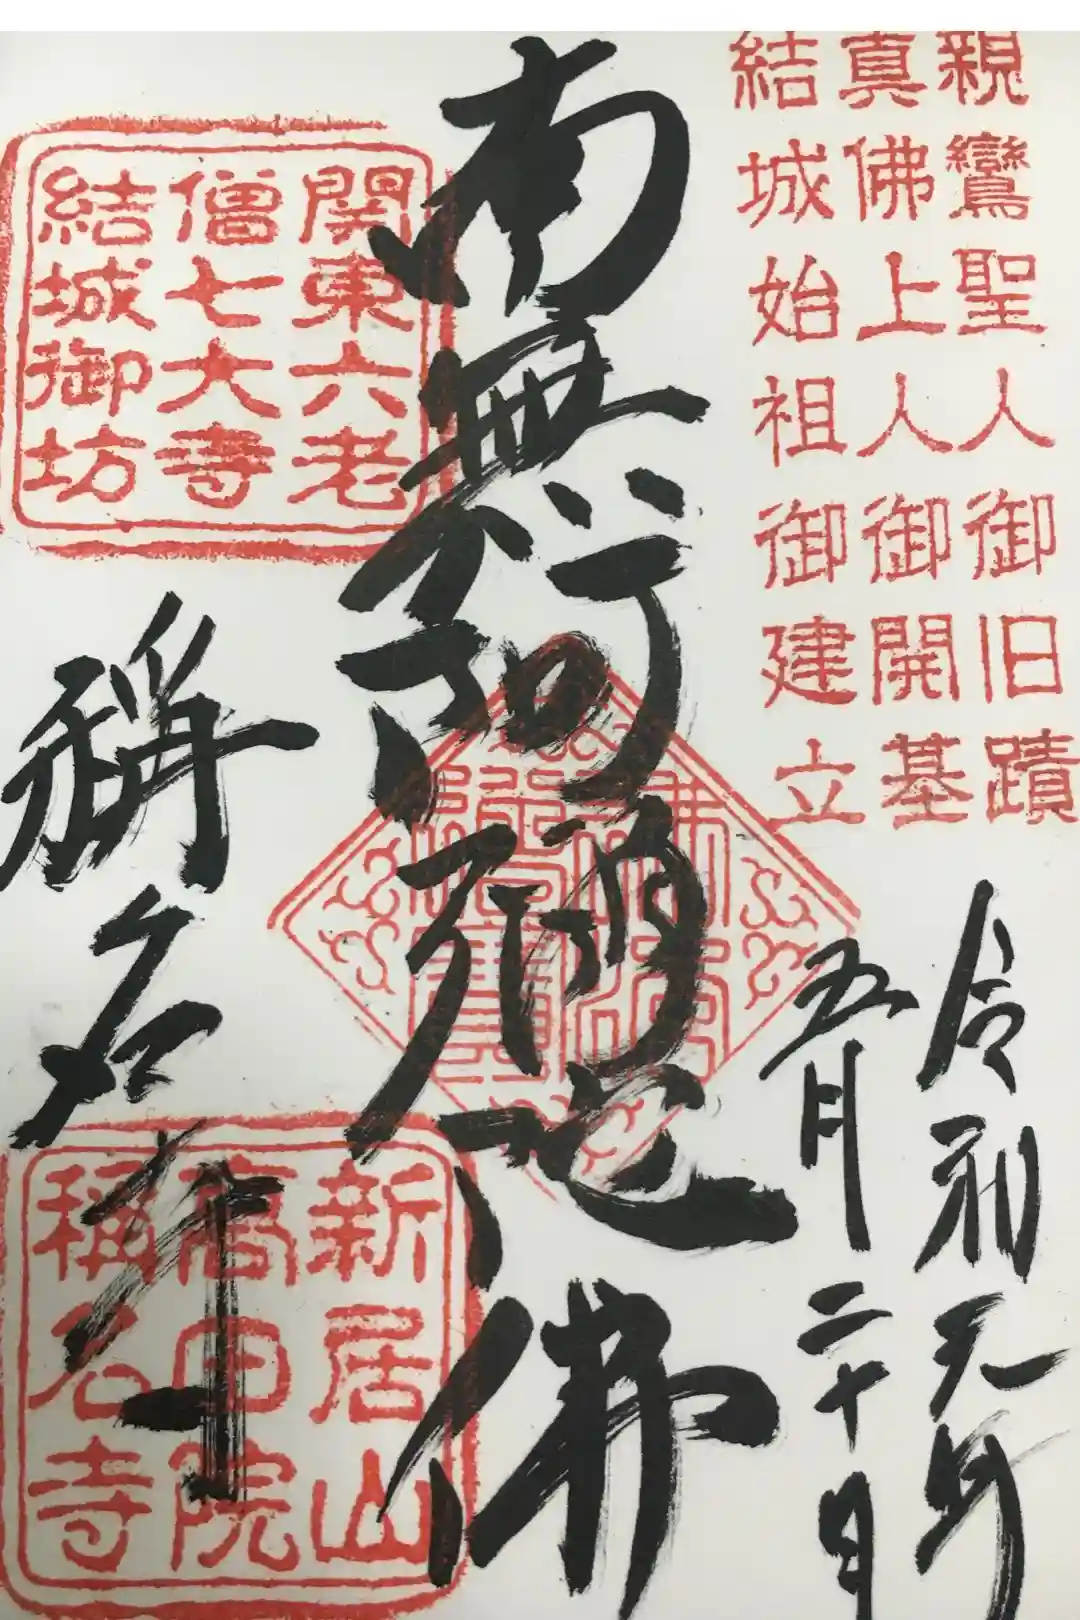 親鸞聖人御旧蹟
真佛上人御開基
結城始祖御建立
令和元年
五月二十日
南無阿彌陀佛
関東六老
僧七大寺
結城御坊
稱名寺
新居山
高田院
稱名寺